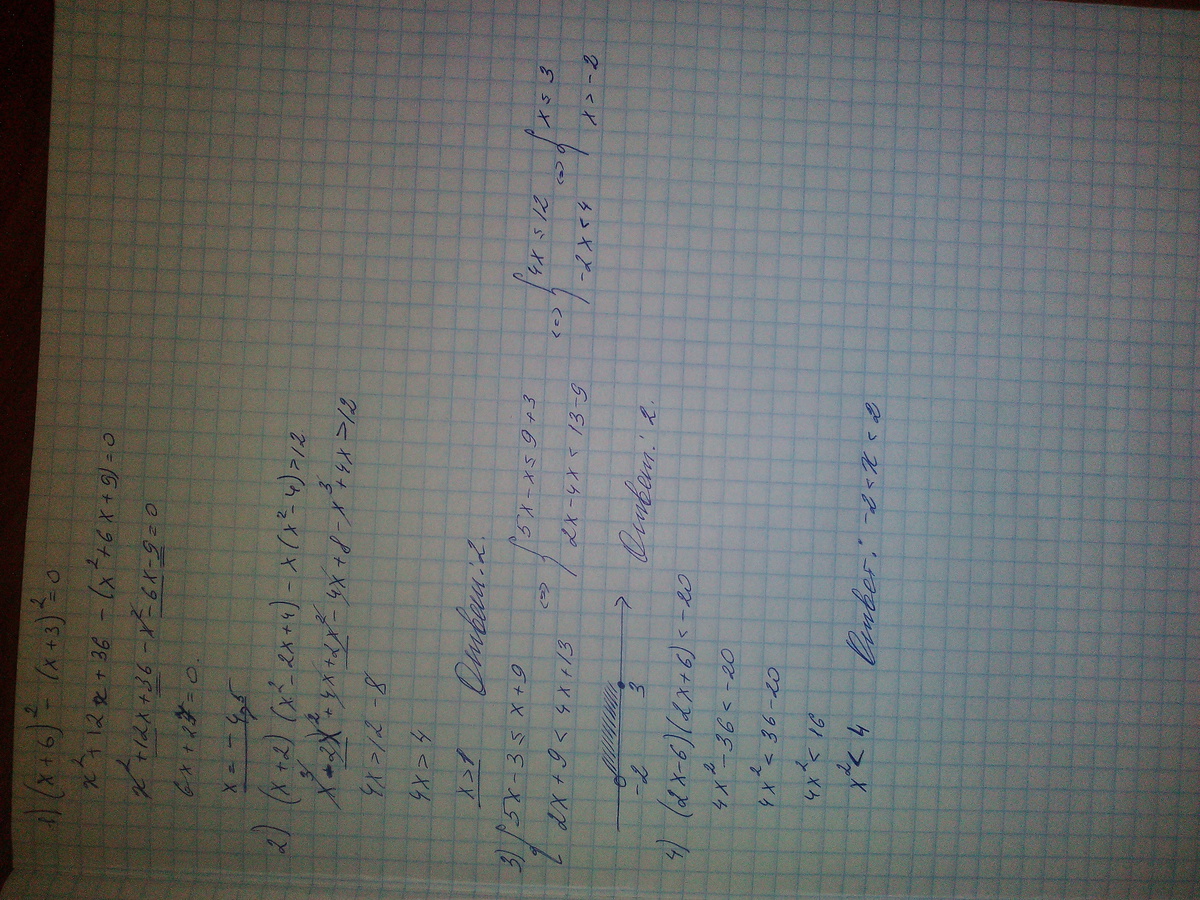 1) (x+6)² - (x+3)² = 0
x² + 12x + 36 - (x² + 6x + 9) = 0
x² + 12x + 36 - x² - 6x - 9 = 0
6x + 27 = 0.
x = -4,5
2) (x+2)(x² - 2x + 4) - x(x² - 4) > 12
x³ - 2x² + 4x + 2x² - 4x + 8 - x³ + 4x > 12
4x > 12 - 8
4x > 4
x > 1 Ответ: 2.
3) { 5x - 3 ≤ x + 9 ⇔ { 5x - x ≤ 9 + 3 ⇔ { 4x ≤ 12 ⇔ { x ≤ 3
2x + 9 < 4x + 13 2x - 4x < 13 - 9 -2x < 4 x > -2
-2 3 Ответ: 2.
4) (2x - 6)(2x + 6) < -20
4x² - 36 < -20
4x² < 36 - 20
4x² < 16
x² < 4 Ответ: -2 < x < 2